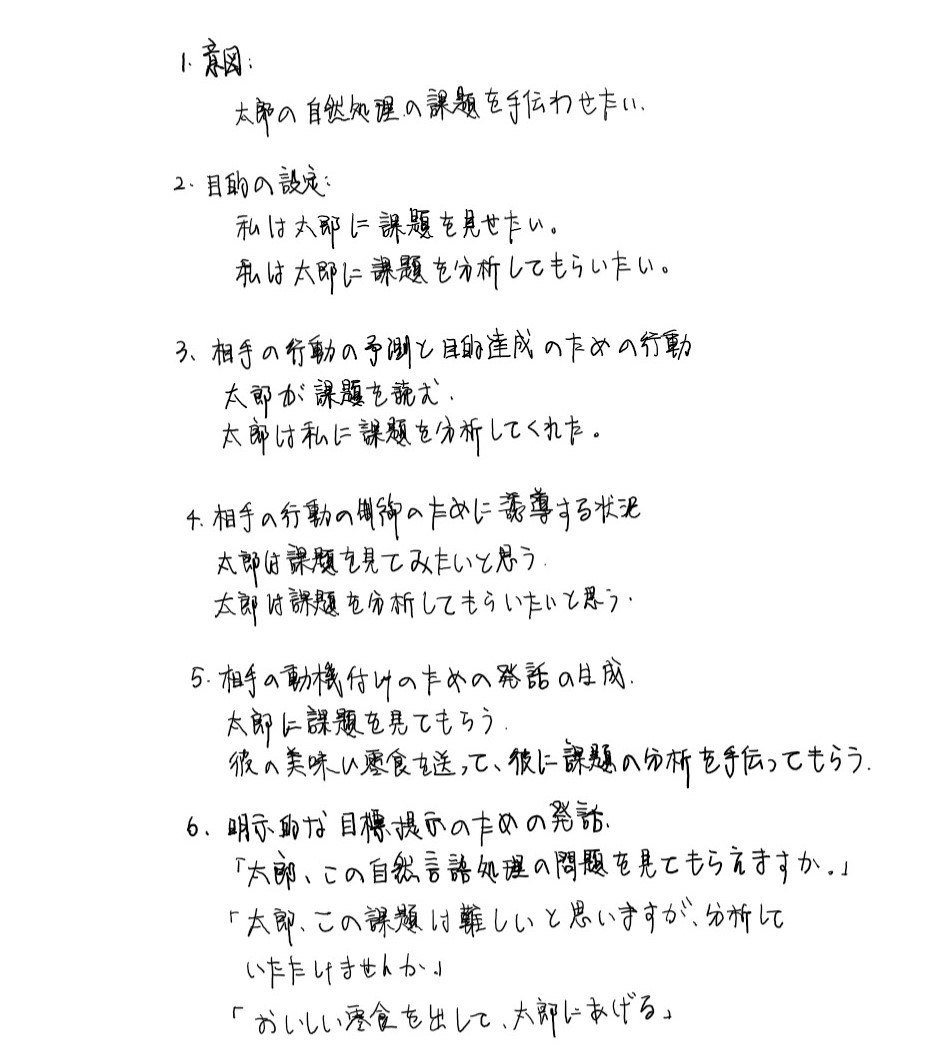 1. 意図:
太郎の自然処理の課題を手伝わせたい.
2. 目的の設定:
私は太郎に課題を見せたい。
私は太郎に課題を分析してもらいたい。
3、相手の行動の予測と目的達成のための行動
太郎が課題を読む.
太郎は私に課題を分析してくれた。
4. 相手の行動の制御のために誘導する状況
太郎は課題を見てみたいと思う.
太郎は課題を分析してもらいたいと思う.
5. 相手の動機付けのための発話の生成.
太郎に課題を見てもらう.
彼の美味い零食を送って、彼に課題の分析を手伝ってもらう.
6、明示的な目標提示のための発話.
「太郎、この自然言語処理の問題を見てもらえますか。」
「太郎、この課題は難しいと思いますが、分析して
いただけませんか。」
「おいしい零食を出して、太郎にあげる」